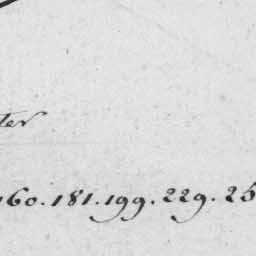 ter
160. 181. 199. 229. 25